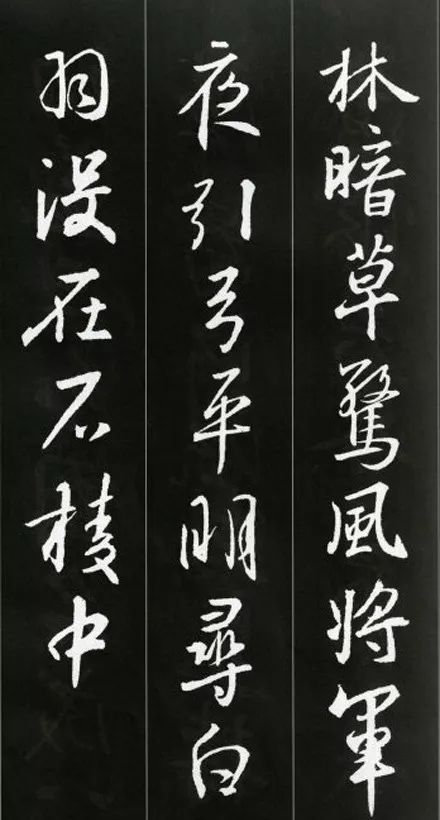 林暗草驚風將軍
夜引弓平明尋白
羽没在石棱中